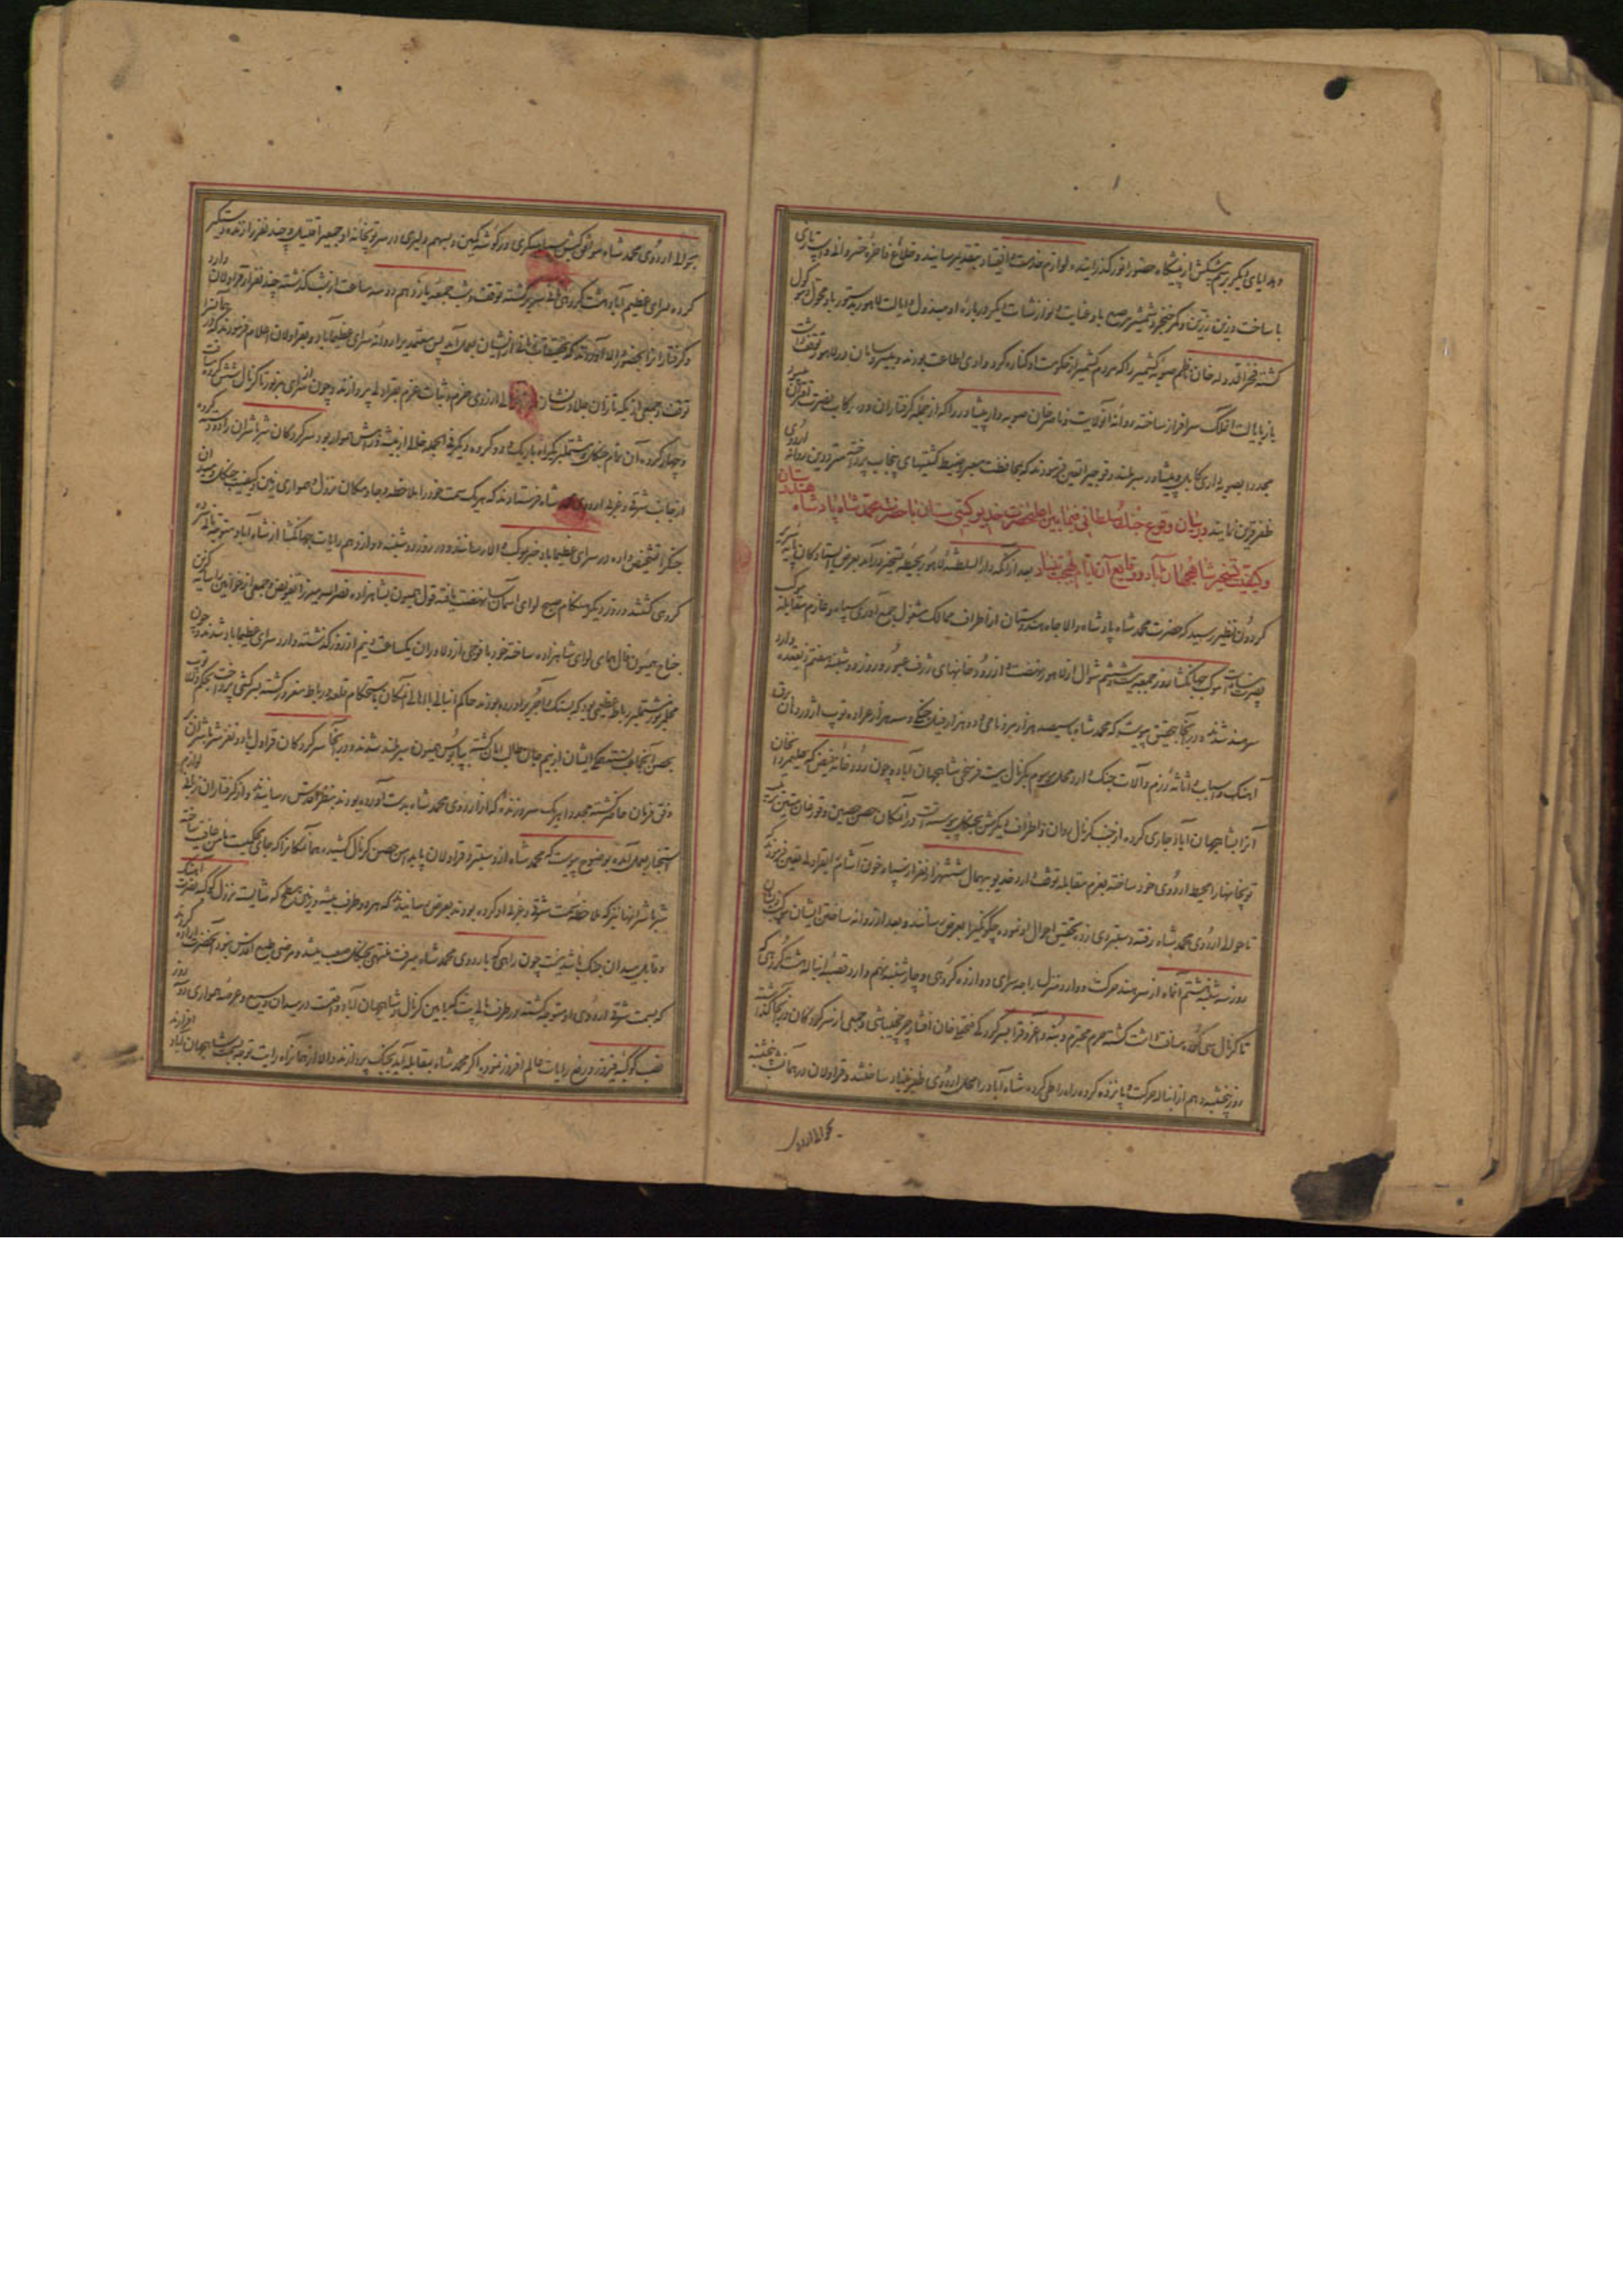 و هدایای دیگر برسم پیشکش از پیشگاه حضور انور گذرانیده لوازم خدمت و انقیاد بتقدیم رسانیدند و خلاع فاخره خسروانی و اسب تازی
با ساخت و زین زرین و کمر خنجر و شمشیر مرصع باو عنایت و نوازشات دیگر درباره او مبذول و ایالت لاهور بدستور باو محول و موکول
گشته فخر الدوله خان ناظم صوبه کشمیر را که مردم کشمیر از حکومت او کناره کرده وادی اطاعت بودند و در لاهور توقف داشت
باز بایالت سرافراز ساخته روانه آنولایت و ناصر خان صوبه دار پیشاور را که از جمله گرفتاران و در رکاب نصرت
مجددا بصوبه داری کابل و پیشاور سربلند و فوجی را تعیین فرمودند که بمحافظت معبر و ضبط کشتیهای پنجاب پرداخته مترددین روانه اردوی
ظفر قرین نمایند در بیان وقوع جنگ سلطانی فیمابین اعلیحضرت خدیو گیتی ستان با حضرت محمد شاه پادشاه هندوستان
و کیفیت تسخیر شاهجهان آباد و وقایع آن ایام بهجت بنیاد بعد از آنکه دار السلطنه لاهور بحیطه تسخیر درآمد بعرض ایستادگان پایه سریر
گردون نظیر رسید که حضرت محمد شاه پادشاه والا جاه هندوستان از اطراف ممالک مشغول جمع آوری سپاه و عازم مقابله موکب
نصرت پناه است موکب جهانگشا روز جمعه بیست و ششم شوال از لاهور نهضت و از رودخانهای ژرف عبور و روز دوشنبه هفتم ذیقعده وارد
سرهند شدند در آنجا بتحقیق پیوست که محمد شاه با سیصد هزار مرد نامی و دو هزار فیل جنگی و سه هزار عراده توپ اژدر دهان برق
آهنگ و اسباب و اثاثه رزم و آلات جنگ وارد محل موسوم بکرنال بیست فرسخی شاهجهان آباد و چون رودخانه فیض که علیمردان خان
آنرا بشاهجهان آباد جاری کرده از جنب کرنال روان و اطراف دیگرش بجنگل پیوسته است در آنمکان حصن حصین و توپخان متین ترتیب
توپخانها را محیط اردوی خود ساخته بعزم مقابله توقف دارد خدیو بیهمال ششهزار نفر از سپاه خون آشام را بقراولی تعیین فرمودند که
تا حوالی اردوی محمد شاه رفته دستبردی زده تحقیق احوال او نموده چگونگی را بعرض رسانند و بعد از روانه ساختن ایشان موکب
روز سه شنبه هشتم آنماه از سرهند حرکت و وارد منزل راجه سرای دوازده کروهی و چهارشنبه نهم وارد قصبه انباله هشت کروهی که
تا کرنال سی کروه مسافت داشت گشته حرم محترم و بنه و آغروق را بسرکردگی فتحعلی خان افشار چرخچی باشی و جمعی از سرکردگان در آنجا گذاشته
روز پنجشنبه دهم از انباله حرکت و پانزده کروه راه را طی کرده شاه آباد را محل اردوی ظفر بنیاد ساختند و قراولان در همان شب پنجشنبه
بحوالی اردو
بحوالی اردوی محمد شاه کمین و بسهم دلیری در سر توپخانه او جمعی را قتیل و چند نفر را زنده دستگیر
کرده سرای عظیم آباد هشت کروهی کرنال برگشته توقف و شب جمعه یازدهم دو سه ساعت از شب گذشته چند نفر از قراولان وارد
و گرفتار انرا بحضور والا آوردند که تحقیقات از ایشان بعمل آید پس معتمدی را روانه سرای عظیم آباد و بقراولان اعلام فرمودند که در آنجا
توقف و جمعی از یکه تازان جلادت نشان از روی حزم و ثبات عزم بقراولی پردازند و چون از سرای مزبور تا کرنال شش کروه
و چهار کروه آن تمام جنگل و مشتمل بر یک راه باریک و دو کروه دیگر فی الجمله خالی از بیشه و زمینش هموار بود سرکردگان شرباشران را دو دسته کرده
از جانب شرقی و غربی اردوی محمد شاه فرستادند که هر یک سمت خود را ملاحظه و جا و مکان نزول و همواری زمین و کیفیت جنگل و میدان
جنگ را تشخیص داده در سرای عظیم آباد خبر بموکب والا رسانند و در روز دوشنبه دوازدهم رایات جهانگشا از شاه آباد متوجه
کروهی گشتند و روز دیگر هنگام صبح لوای آسمان سا نهضت یافته قول همیون بشاهزاده نصرالله میرزا تفویض و جمعی از خوانین
جناح همیون فال همای لوای شاهزاده ساخته خود با فوجی از دلاوران یکساعت و نیم از روز گذشته وارد سرای عظیم آباد شدند و چون
محل مزبور مشتملبر رباط عظیمی بود که بسنگ و آجر برآورده بودند حاکم انباله با اهالی آنمکان باستحکام قلعه و رباط مغرور گشته بسرکشی پرداخت بحکم والا توپ
بحصن آنجا بسته ایشان از بیم جان طالب امان گشته بپابوس همیون سربلند شدند و در آنجا سرکردگان قراول با دو نفر شرباشران
وفق فرمان حاضر گشته مجددا هر یک سر و زنده که از اردوی محمد شاه بدست آورده بودند بنظر اقدس رسانیدند و از گرفتاران شرایط لوازم
استخبار بعمل آمده بوضوح پیوست که محمد شاه از دستبرد قراولان پا بدامن حصن کرنال کشیده همان مکانرا که جای محکمیست مأمن عافیت ساخته
شرباشران نیز که ملاحظه سمت شرقی و غربی او کرده بودند بعرض رسانیدند که هر دو طرف بیشه و زمین مسطح که شایسته نزول کوکبه نصرت آهنگ
و قابل میدان جنگ باشد نیست چون راهی که باردوی محمد شاه میرفت منتهی بجنگل صعب میشد و مرضی طبع اقدس نبود آنحضرت اراده کردند
که بسمت شرقی اردوی او متوجه گشته در طرف پانی پت که مابین کرنال و شاهجهان آباد واقعست در میدان وسیع و عرصه هموار آن روز
نصب کوکبه فیروز و رفع رایات عالم افروز نموده اگر محمد شاه بمقابله آید بجنگ پردازند والا از همانراه رایت توجه بسمت شاهجهان آباد افرازند